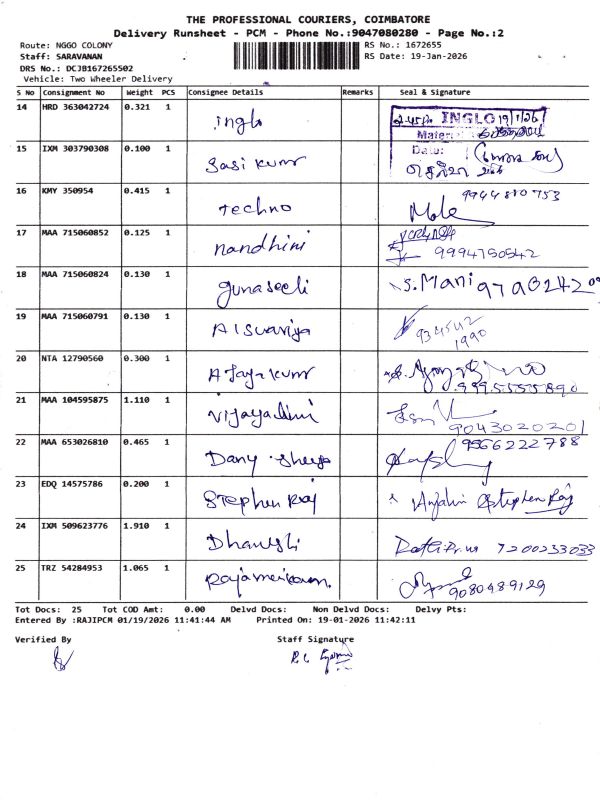 THE PROFESSIONAL COURIERS, COIMBATORE
Delivery Runsheet - PCM - Phone No.:9047080280 - Page No.:2
Route: NGGO COLONY
RS No.: 1672655
Staff: SARAVANAN
RS Date: 19-Jan-2026
DRS No.: DCJB167265502
Vehicle: Two Wheeler Delivery
S No Consignment No Weight PCS Consignee Details Remarks Seal & Signature
14 HRD 363042724 0.321 1 inglo INGLO 19/1/26
Material
Date:
15 IXM 303790308 0.100 1 Sasi kumr
16 KMY 350954 0.415 1 Techno 9944880753
17 MAA 715060852 0.125 1 nandhini 9994750542
18 MAA 715060824 0.130 1 gunaseeli S.Mani
19 MAA 715060791 0.130 1 Aiswariya 934542
1990
20 NTA 12790560 0.300 1 AJaya kumr 9995555890
21 MAA 104595875 1.110 1 Vijayalini 9043020201
22 MAA 653026810 0.465 1 Dany 9566222788
23 EDQ 14575786 0.200 1 Stephen Raj Anjalin Stephen Raj
24 IXM 509623776 1.910 1 7200233033
25 TRZ 54284953 1.065 1 9080489129
Tot Docs: 25 Tot COD Amt: 0.00 Delvd Docs: Non Delvd Docs: Delvy Pts:
Entered By :RAJIPCM 01/19/2026 11:41:44 AM Printed On: 19-01-2026 11:42:11
Verified By Staff Signature